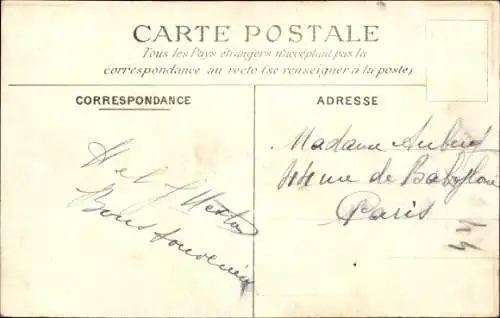 CARTE POSTALE
Tous les Pays étrangers n'acceptant pas la
correspondance au recto (se renseigner à la poste)
CORRESPONDANCE
ADRESSE
Bons souvenirs
Madame
44 rue de Babylone
Paris
44